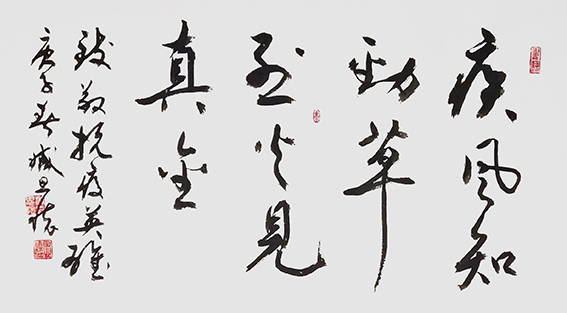 疾风知
劲草
烈火見
真金
致敬抗疫英雄
庚子春臧